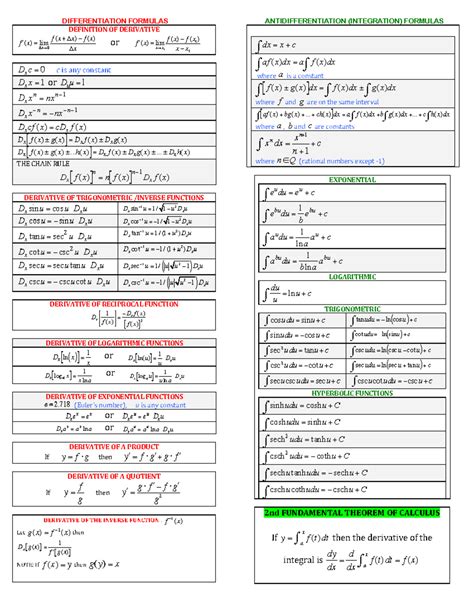 DIFFERENTIATION FORMULAS
DEFINITION OF DERIVATIVE
f'(x) = lim Δx→0 f(x + Δx) − f(x) / Δx or f'(x) = lim f(x) − f(x₁) / x − x₁
Dₓc = 0 c is any constant
Dₓx = 1 or Dᵤu = 1
Dₓxⁿ = nxⁿ⁻¹
Dₓx⁻ⁿ = −nx⁻ⁿ⁻¹
Dₓcf(x) = cDₓf(x)
Dₓ[f(x) ± g(x)] = Dₓf(x) ± Dₓg(x)
Dₓ[f(x) ± g(x) ± ...h(x)] = Dₓf(x) ± Dₓg(x) ± ... ± Dₓh(x)
THE CHAIN RULE
Dₓ[f(x)]ⁿ = n[f(x)]ⁿ⁻¹ Dₓf(x)
DERIVATIVE OF TRIGONOMETRIC /INVERSE FUNCTIONS
Dₓ sin u = cos u Dₓu Dₓ sin⁻¹ u = 1/√1−u² Dₓu
Dₓ cos u = −sin u Dₓu Dₓ cos⁻¹ u = −1/√1−u² Dₓu
Dₓ tan u = sec² u Dₓu Dₓ tan⁻¹ u = 1/(1+u²) Dₓu
Dₓ cot u = −csc² u Dₓu Dₓ cot⁻¹ u = −1/(1+u²) Dₓu
Dₓ sec u = sec u tan u Dₓu Dₓ sec⁻¹ u = 1/(|u|√u²−1) Dₓu
Dₓ csc u = −csc u cot u Dₓu Dₓ csc⁻¹ u = −1/(|u|√u²−1) Dₓu
DERIVATIVE OF RECIPROCAL FUNCTION
Dₓ[1/f(x)] = −Dₓf(x)/[f(x)]²
DERIVATIVE OF LOGARITHMIC FUNCTIONS
Dₓ[ln(x)] = 1/x or Dₓ[ln(u)] = 1/u Dₓu
Dₓ[logₐx] = 1/x ln a or Dₓ[logₐu] = 1/u ln a Dₓu
DERIVATIVE OF EXPONENTIAL FUNCTIONS
e = 2.718 (Euler's number), u is any constant
Dₓeˣ = eˣ or Dₓeᵘ = eᵘ Dₓu
Dₓaˣ = aˣ ln a or Dₓaᵘ = aᵘ ln a Dₓu
DERIVATIVE OF A PRODUCT
If y = f · g then y' = f' · g + g' · f
DERIVATIVE OF A QUOTIENT
If y = f/g then y' = g · f' − f · g' / g²
DERIVATIVE OF THE INVERSE FUNCTION f⁻¹(x)
Let g(x) = f⁻¹(x) then
Dₓ[g(x)] = 1/f'[g(x)]
NOTE: If f(x) = y then g(y) = x
ANTIDIFFERENTIATION (INTEGRATION) FORMULAS
∫dx = x + c
∫af(x)dx = a∫f(x)dx
where a is a constant
∫[f(x) ± g(x)]dx = ∫f(x)dx ± ∫g(x)dx
where f and g are on the same interval
∫[af(x) + bg(x) + ... + ch(x)]dx = a∫f(x)dx + b∫g(x)dx + ... + c∫h(x)dx
where a , b and c are constants
∫xⁿ dx = xⁿ⁺¹/n + 1 + c
where n∈Q (rational numbers except -1)
EXPONENTIAL
∫eᵘdu = eᵘ + c
∫eᵇᵘdu = 1/b eᵇᵘ + c
∫aᵘdu = 1/ln a aᵘ + c
∫aᵇᵘdu = 1/b ln a aᵇᵘ + c
LOGARITHMIC
∫du/u = ln u + c
TRIGONOMETRIC
∫cos u du = sin u + c ∫tan u du = −ln(cos u) + c
∫sin u du = −cos u + c ∫cot u du = ln(sin u) + c
∫sec² u du = tan u + c ∫csc u du = ln(csc u − cot u) + c
∫csc² u du = −cot u + c ∫sec u du = ln(sec u + tan u) + c
∫sec u csc u du = sec u + c ∫csc u cot u du = −csc u + c
HYPERBOLIC FUNCTIONS
∫sinh u du = cosh u + C
∫cosh u du = sinh u + C
∫sech² u du = tanh u + C
∫csch² u du = −coth u + C
∫sech u tanh u du = −sech u + C
∫csch u coth u du = −csch u + C
2nd FUNDAMENTAL THEOREM OF CALCULUS
If y = ∫ₐˣ f(t) dt then the derivative of the
integral is dy/dx = d/dx ∫ₐˣ f(t) dt = f(x)